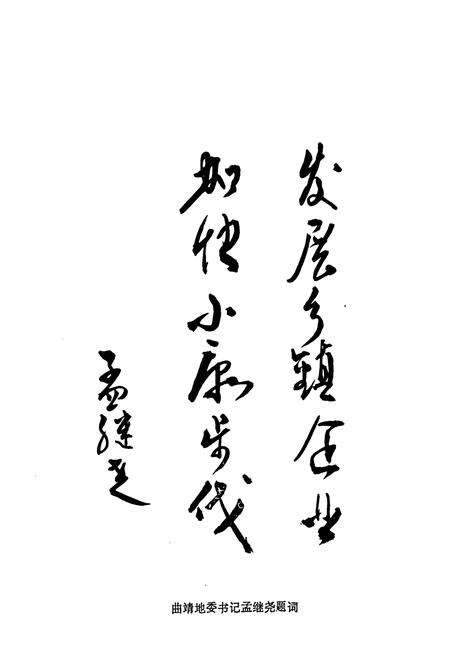 发展乡镇企业
加快小康步伐
孟继尧
曲靖地委书记孟继尧题词